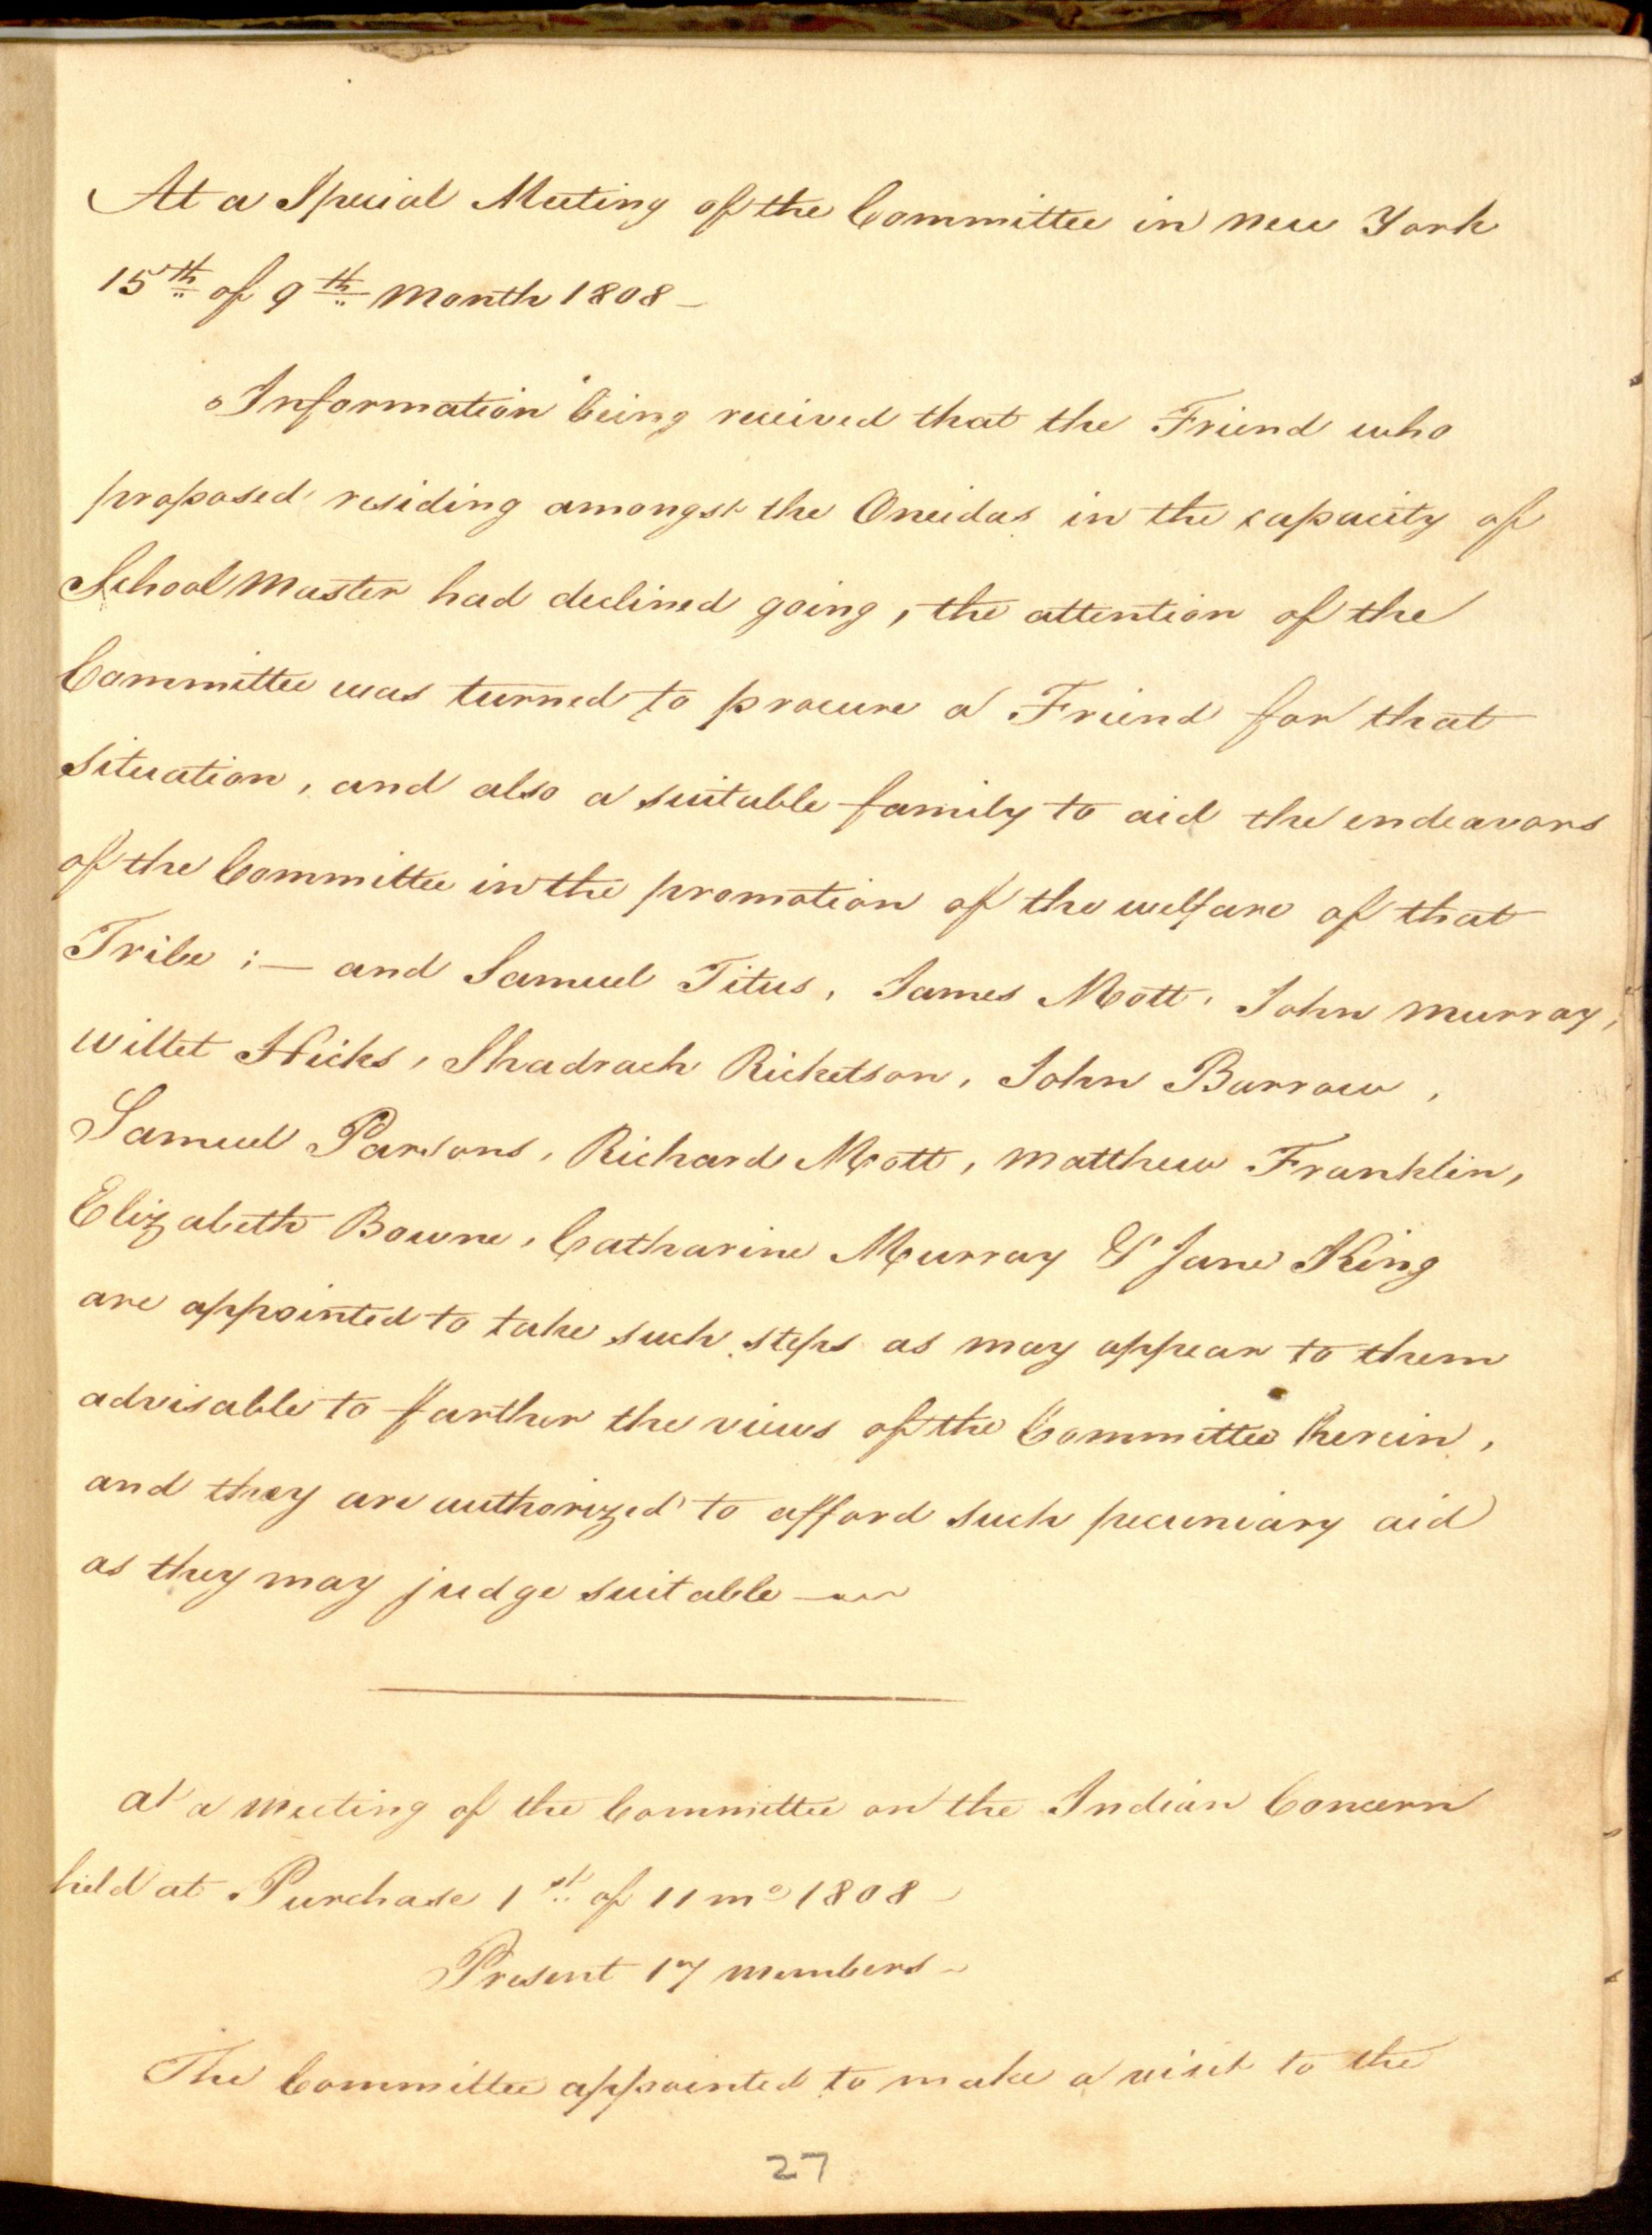 At a Special Meeting of the Committee in New York
15th of 9th Month 1808 –
Information being received that the Friend who
proposed residing amongst the Oneidas in the capacity of
School Master had declined going, the attention of the
Committee was turned to procure a Friend for that
situation, and also a suitable family to aid the endeavors
of the Committee in the promotion of the welfare of that
Tribe ;— and Samuel Titus, James Mott, John Murray,
Willet Hicks, Shadrach Ricketson, John Barrow,
Samuel Parsons, Richard Mott, Matthew Franklin,
Elizabeth Bowne, Catharine Murray & Jane King
are appointed to take such steps as may appear to them
advisable to farther the views of the Committee herein,
and they are authorized to afford such pecuniary aid
as they may judge suitable —
At a Meeting of the Committee on the Indian Concern
held at Purchase 1st of 11 mo 1808 –
Present 17 members –
The Committee appointed to make a visit to the
27